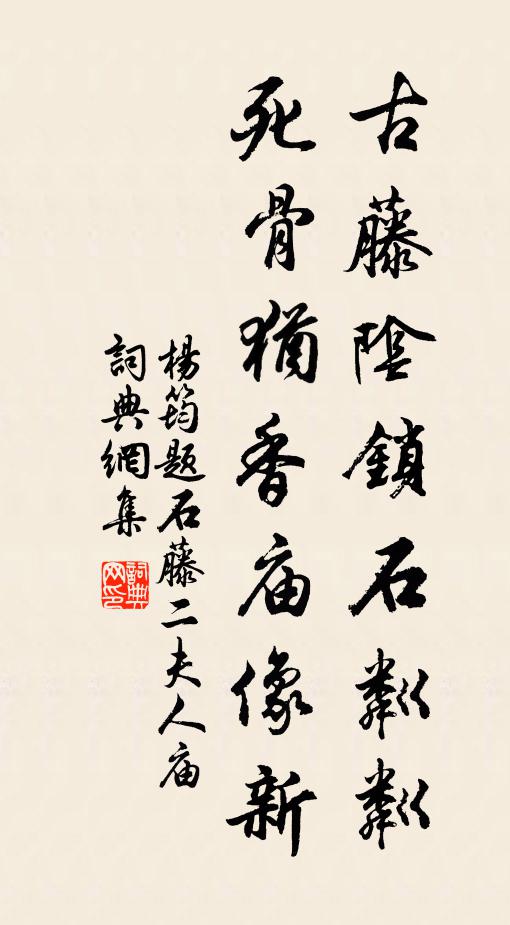 古藤陰鎖石粼粼
死骨猶香庙像新
楊筠题石藤二夫人庙
詞典網集
詞典网印